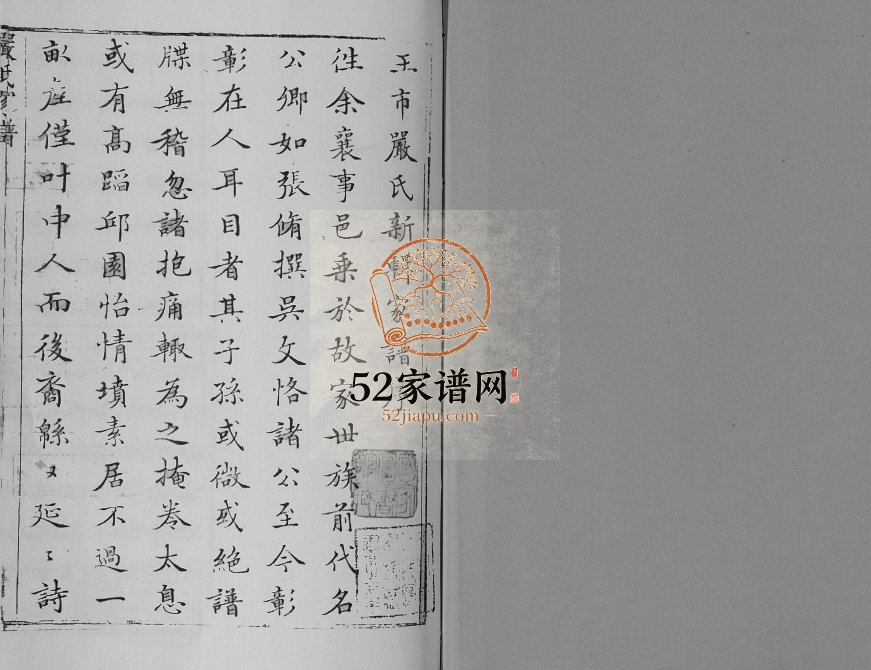 王市嚴氏新輯家譜序
徃余襄事邑乗於故家世族前代名
公卿如張脩撰吳文恪諸公至今彰
彰在人耳目者其子孫或微或絶譜
牒無稽忽諸抱痛輙為之掩卷太息
或有高蹈邱園怡情墳素居不過一
畝產僅叶中人而後裔緜〻延〻詩
嚴氏家譜
52家谱网
52jiapu.com